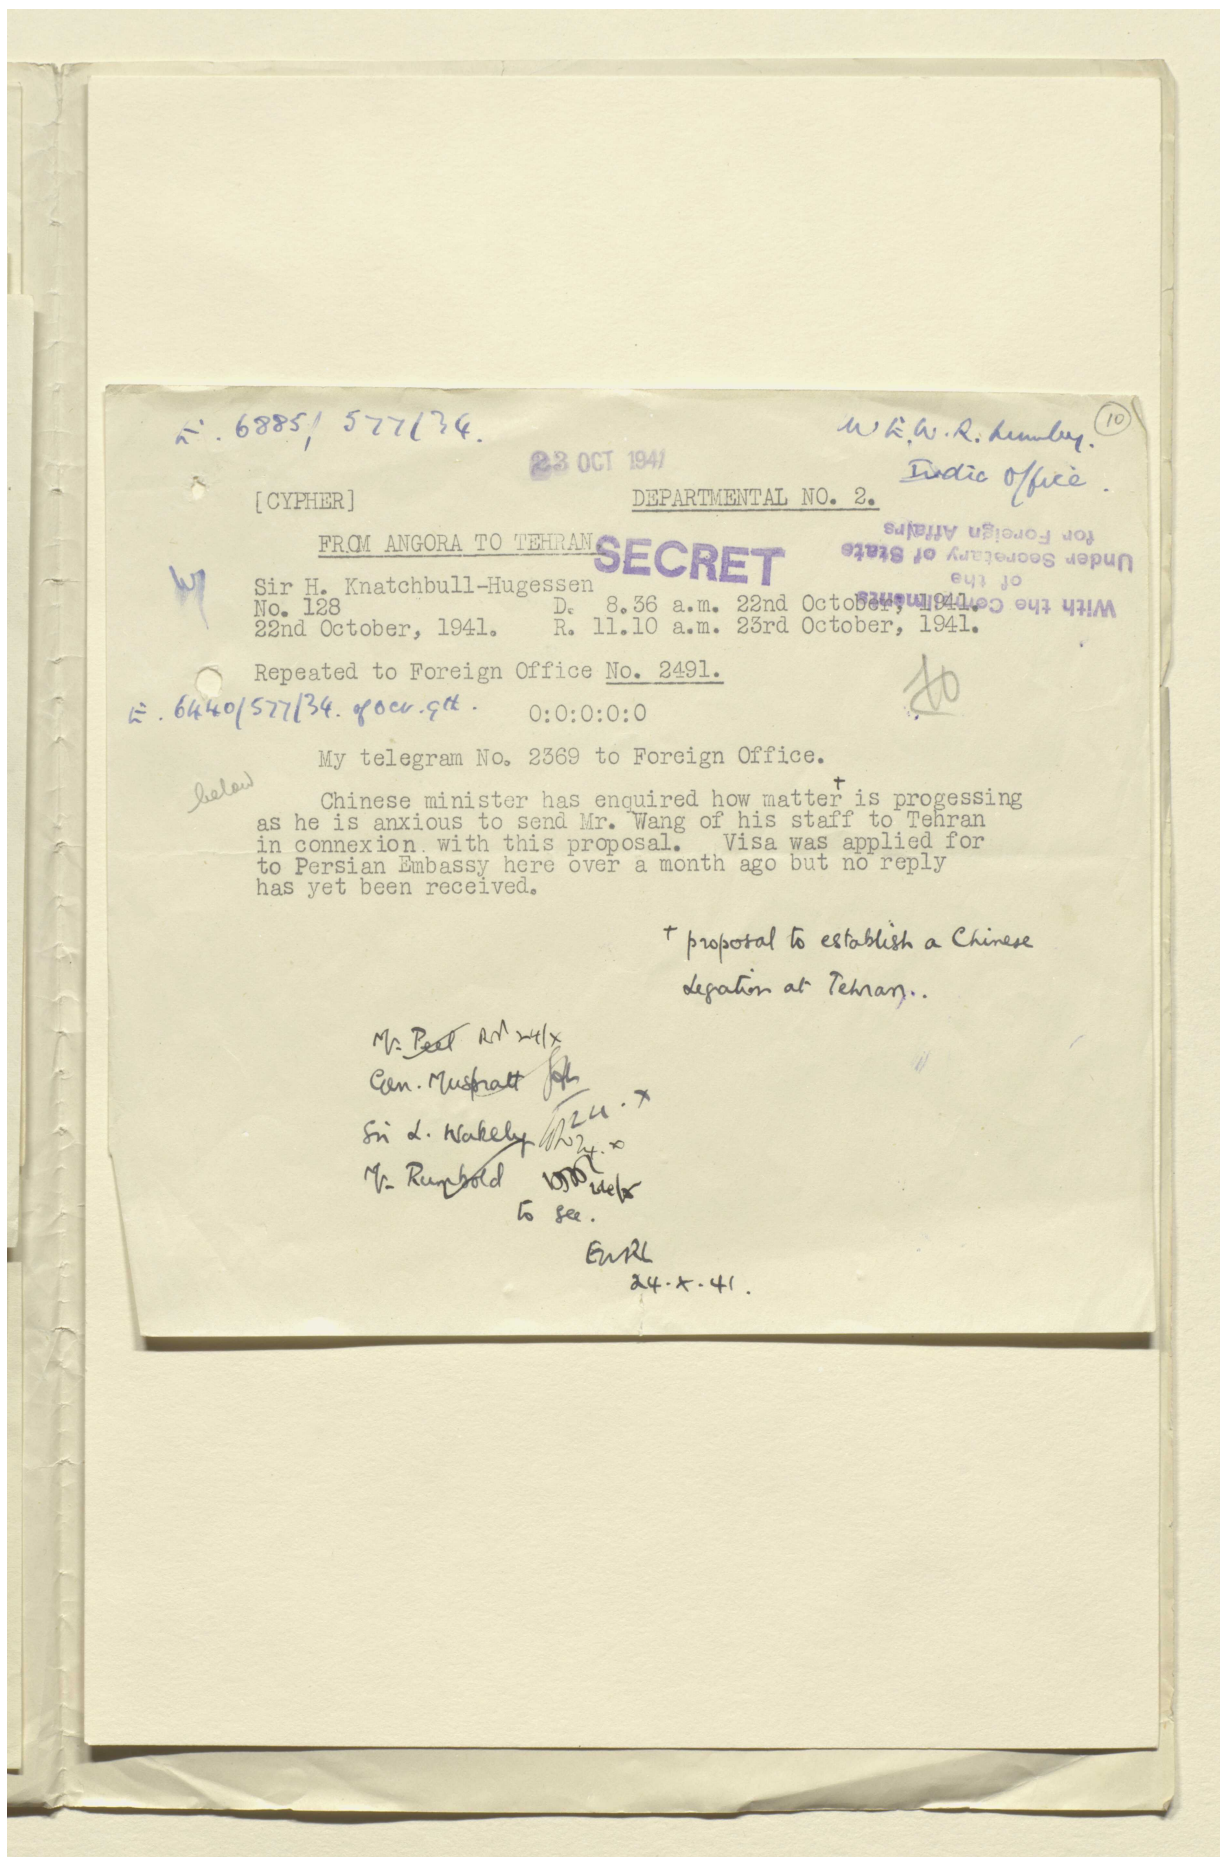 E. 6885/ 577/34.
E.W.R. Lumby.
10
India Office.
23 OCT 1941
[CYPHER]
DEPARTMENTAL NO. 2.
FROM ANGORA TO TEHRAN.
SECRET
With the Compliments
of the
Under Secretary of State
for Foreign Affairs
Sir H. Knatchbull-Hugessen
No. 128 D. 8.36 a.m. 22nd October, 1941.
22nd October, 1941. R. 11.10 a.m. 23rd October, 1941.
Repeated to Foreign Office No. 2491.
E. 6440/577/34. of Oct. 9th.
0:0:0:0:0
My telegram No. 2369 to Foreign Office.
below
Chinese minister has enquired how matter† is progessing
as he is anxious to send Mr. Wang of his staff to Tehran
in connexion with this proposal. Visa was applied for
to Persian Embassy here over a month ago but no reply
has yet been received.
† proposal to establish a Chinese
Legation at Tehran..
Mr. Peel 24/x
Gen. Muspratt
Sir L. Wakely 24.x
Mr. Rumbold
to see.
EWRL
24.x.41.